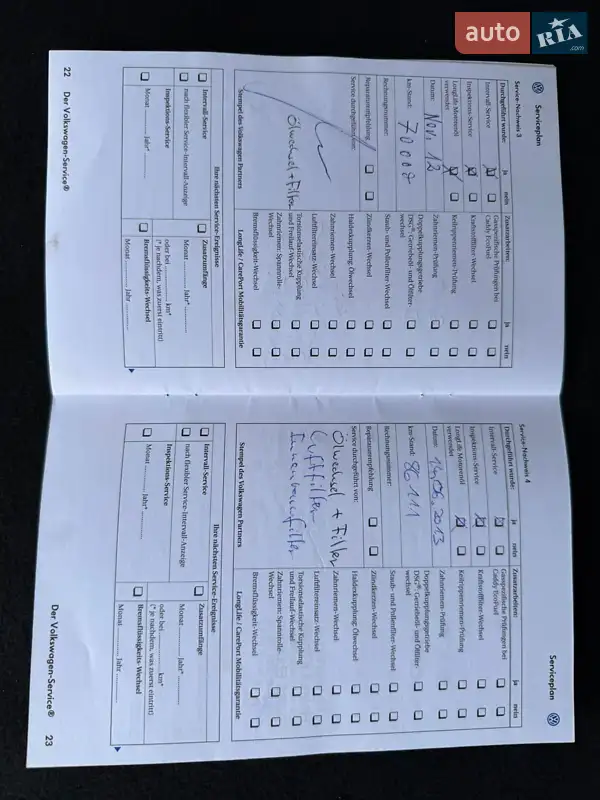 auto RIA .com
Serviceplan
Service-Nachweis 3
Durchgeführt wurde: ja nein
Intervall-Service
Inspektions-Service
LongLife Motorenöl
verwendet
Datum: Nov. 12
km-Stand: 70 000
Rechnungsnummer:
Reparaturempfehlung
Service durchgeführt von:
Ölwechsel + Filter
Stempel des Volkswagen Partners
Zusatzarbeiten: ja nein
Gasspezifische Prüfungen bei
Caddy EcoFuel
Kraftstofffilter-Wechsel
Keilrippenriemen-Prüfung
Zahnriemen-Prüfung
Doppelkupplungsgetriebe
DSG®: Getriebeöl- und Ölfilter-
wechsel
Staub- und Pollenfilter-Wechsel
Zündkerzen-Wechsel
Haldexkupplung: Ölwechsel
Zahnriemen-Wechsel
Luftfiltereinsatz-Wechsel
Torsionselastische Kupplung
und Freilauf-Wechsel
Zahnriemen: Spannrolle-
Wechsel
Bremsflüssigkeit-Wechsel
LongLife / CarePort Mobilitätsgarantie
Ihre nächsten Service-Ereignisse
Intervall-Service
nach flexibler Service-Intervall-Anzeige
Inspektions-Service
Monat Jahr*
Zusatzumfänge
Monat Jahr
oder bei km*
(* je nachdem, was zuerst eintritt)
Bremsflüssigkeits-Wechsel
Monat Jahr
22 Der Volkswagen-Service®
Serviceplan
Service-Nachweis 4
Durchgeführt wurde: ja nein
Intervall-Service
Inspektions-Service
LongLife Motorenöl
verwendet
Datum: 14.06.2013
km-Stand: 86 111
Rechnungsnummer:
Reparaturempfehlung
Service durchgeführt von:
Ölwechsel + Filter
Luftfilter
Innenraumfilter
Stempel des Volkswagen Partners
Zusatzarbeiten: ja nein
Gasspezifische Prüfungen bei
Caddy EcoFuel
Kraftstofffilter-Wechsel
Keilrippenriemen-Prüfung
Zahnriemen-Prüfung
Doppelkupplungsgetriebe
DSG®: Getriebeöl- und Ölfilter-
wechsel
Staub- und Pollenfilter-Wechsel
Zündkerzen-Wechsel
Haldexkupplung: Ölwechsel
Zahnriemen-Wechsel
Luftfiltereinsatz-Wechsel
Torsionselastische Kupplung
und Freilauf-Wechsel
Zahnriemen: Spannrolle-
Wechsel
Bremsflüssigkeit-Wechsel
LongLife / CarePort Mobilitätsgarantie
Ihre nächsten Service-Ereignisse
Intervall-Service
nach flexibler Service-Intervall-Anzeige
Inspektions-Service
Monat Jahr*
Zusatzumfänge
Monat Jahr
oder bei km*
(* je nachdem, was zuerst eintritt)
Bremsflüssigkeits-Wechsel
Monat Jahr
Der Volkswagen-Service® 23